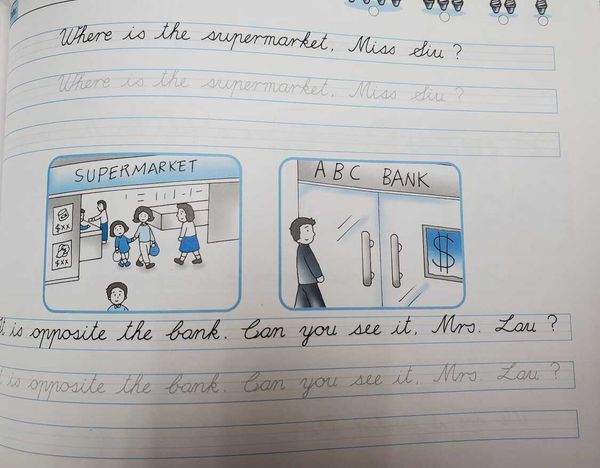 Where is the supermarket, Miss Siu ?
Where is the supermarket, Miss Siu ?
SUPERMARKET
$XX
$XX
ABC BANK
$
is opposite the bank. Can you see it, Mrs. Lau ?
is opposite the bank. Can you see it, Mrs. Lau ?